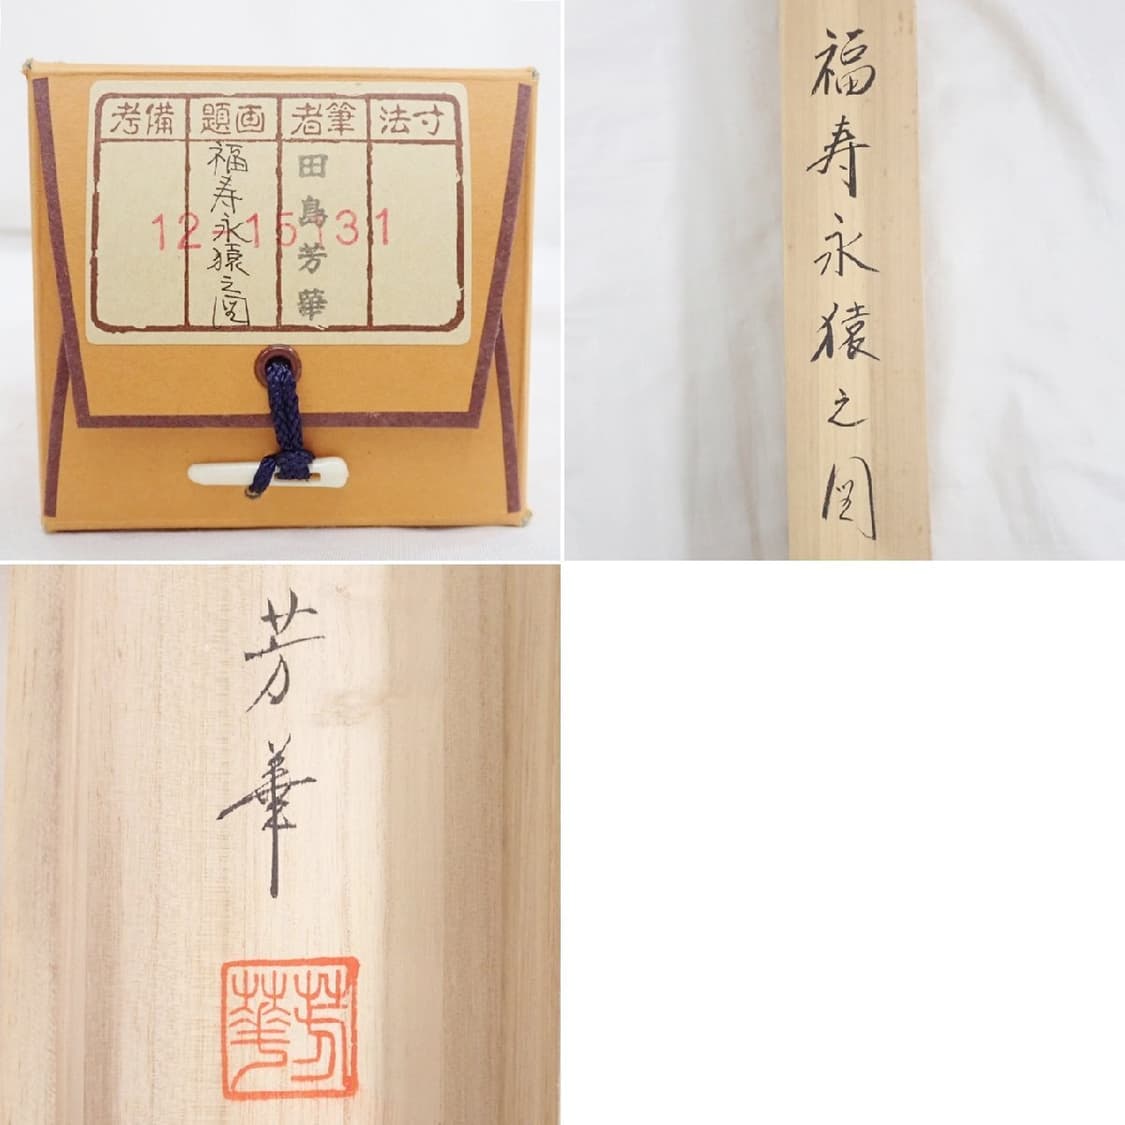 寸法
筆者
画題
備考
田島芳華
福寿永猿之図
12-15131
福寿永猿之図
芳華
芳華